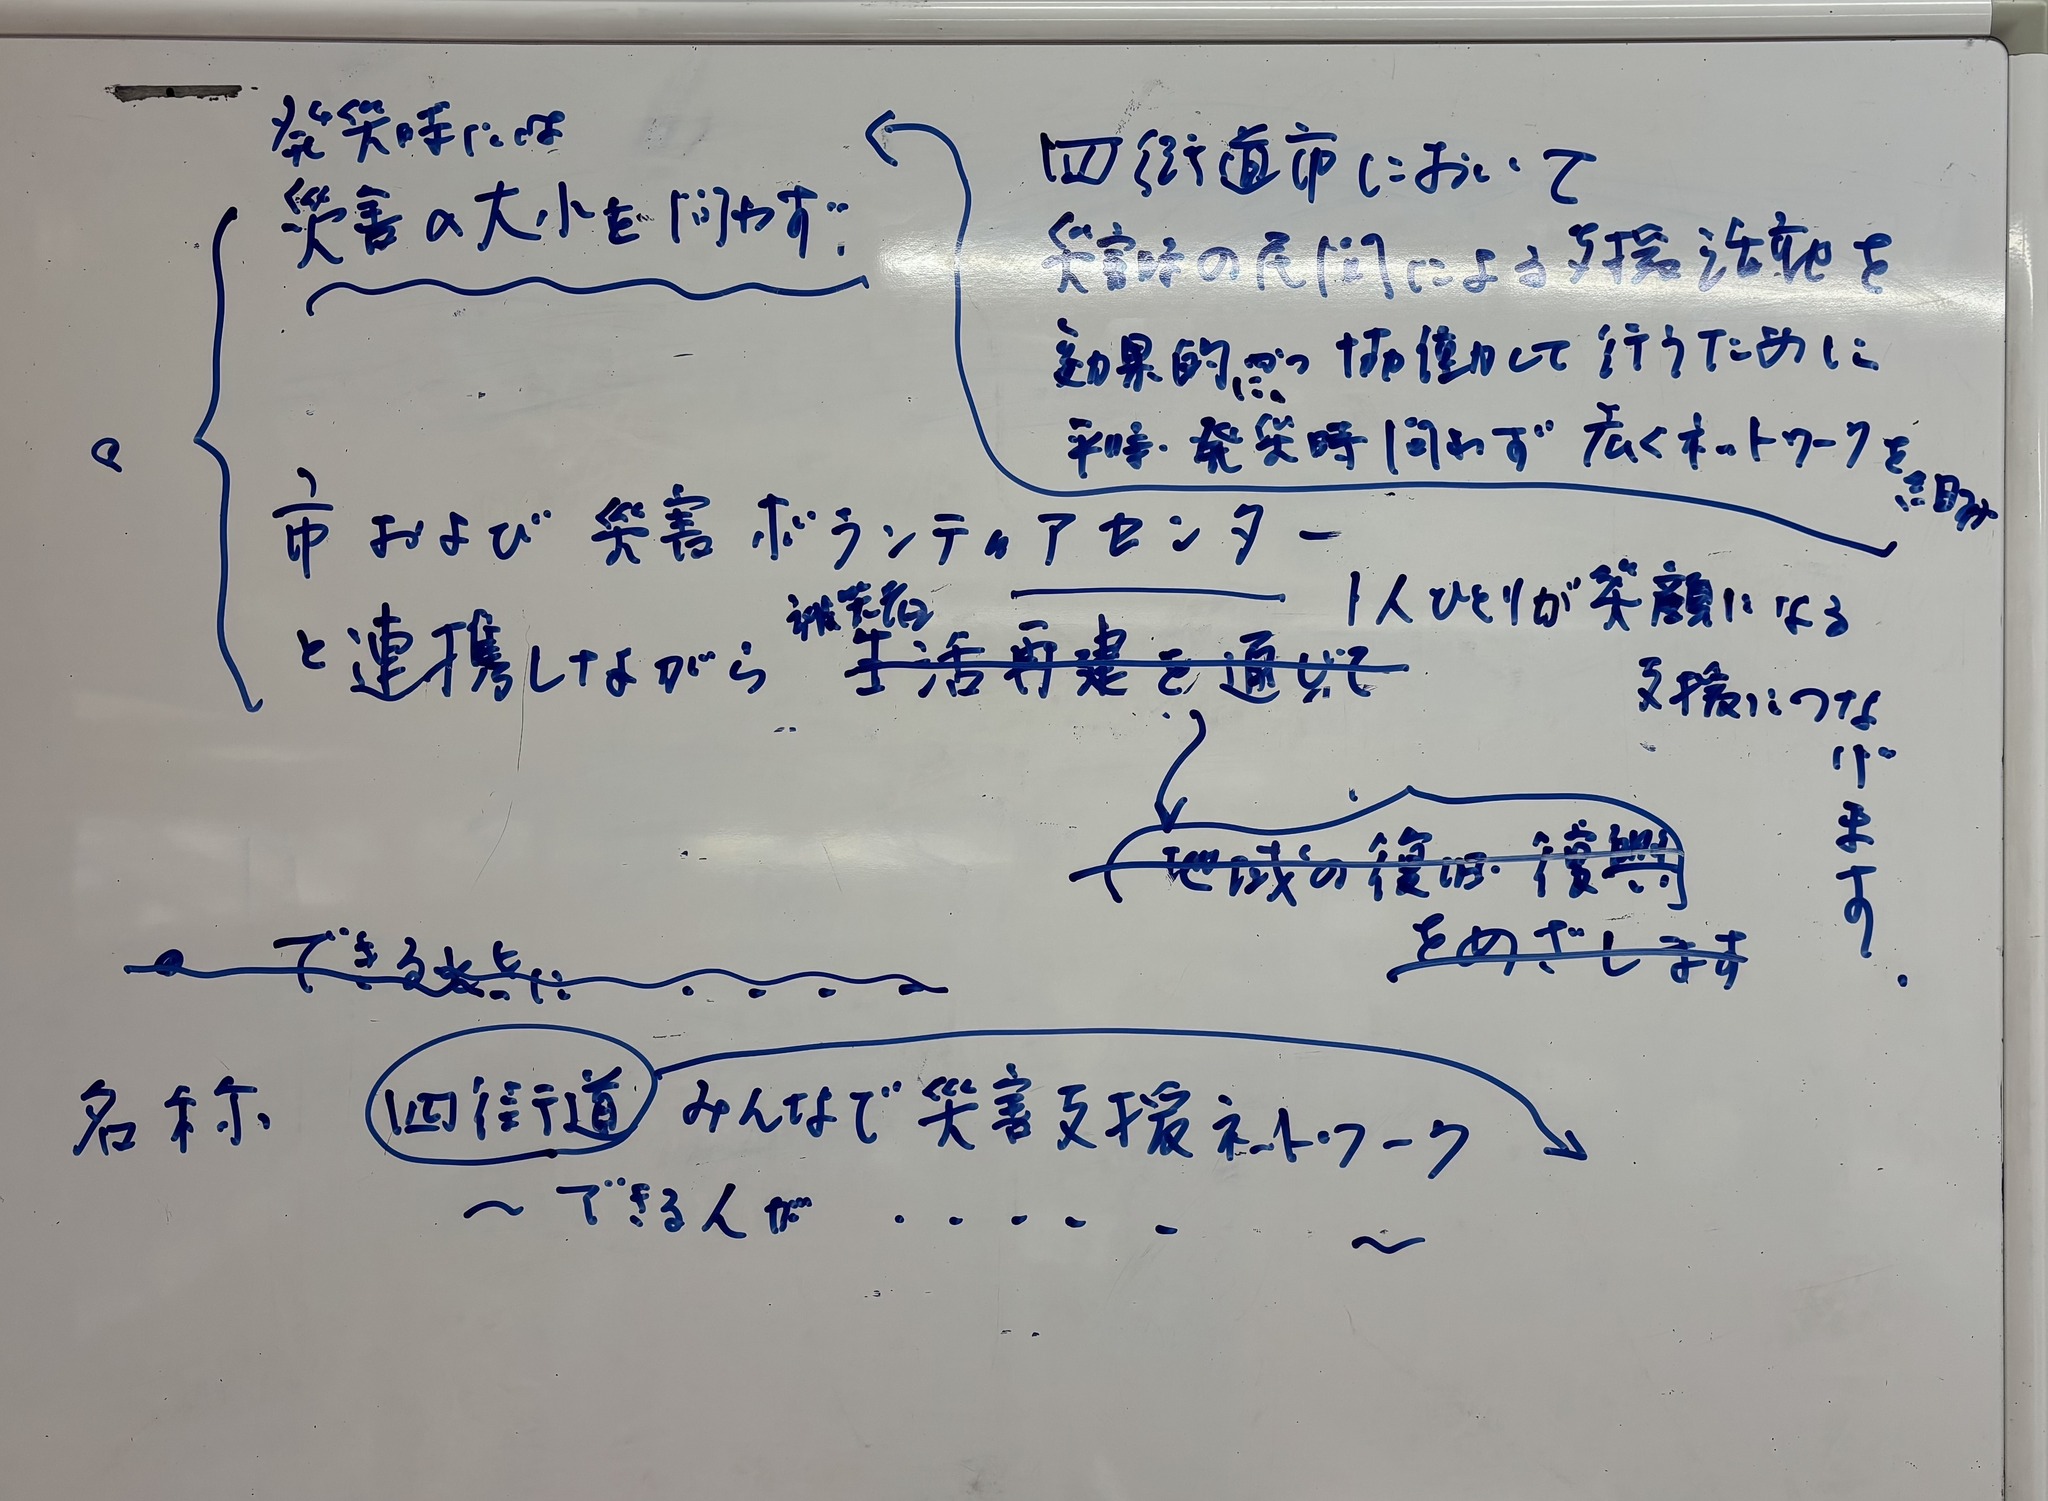 発災時には
災害の大小を問わず、
四街道市において
災害時の民間による支援活動を
効果的かつ協働して行うために
平時・発災時問わず広くネットワークを
市および災害ボランティアセンター
と連携しながら
被災者
生活再建を通じて
1人ひとりが笑顔になる
支援につな
げます.
地域の復旧・復興
をめざします
できる
名称 四街道 みんなで災害支援ネットワーク
〜できる人が ・・・・・〜